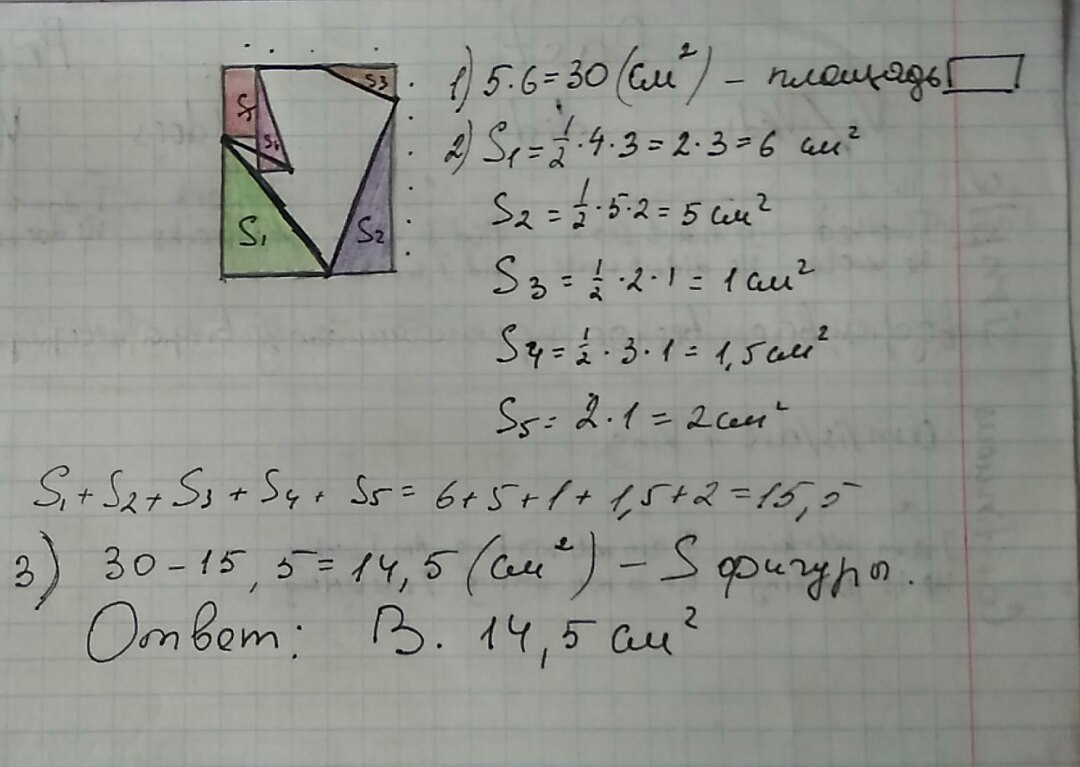 1) 5·6=30 (см²) – площадь
2) S₁ = 1/2·4·3 = 2·3 = 6 см²
S₂ = 1/2·5·2 = 5 см²
S₃ = 1/2·2·1 = 1 см²
S₄ = 1/2·3·1 = 1,5 см²
S₅ = 2·1 = 2 см²
S₅
S₄
S₃
S₁
S₂
S₁ + S₂ + S₃ + S₄ + S₅ = 6+5+1+1,5+2 = 15,5
3) 30 – 15,5 = 14,5 (см²) – S фигуры.
Ответ: В. 14,5 см²